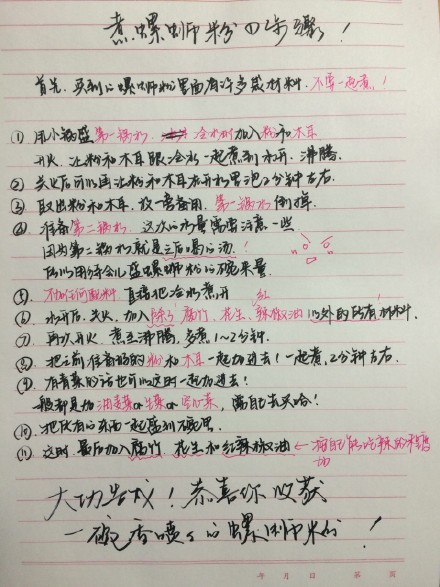 煮螺蛳粉的步骤！
首先，买到的螺蛳粉里面有许多袋材料，不要一起煮！
① 用小锅盛第一锅水，冷水时加入粉和木耳
开火，让粉和木耳跟冷水一起煮到水开，沸腾。
② 关火后可以再让粉和木耳在开水里泡2分钟左右
③ 取出粉和木耳，放一旁备用，第一锅水倒掉。
④ 准备第二锅水，这次的水量需要注意一些
因为第二锅水就是之后喝的汤！
所以用待会儿盛螺蛳粉的碗来量
⑤ 不加任何配料，直接把冷水煮开
⑥ 水开后，关火，加入除了腐竹、花生、红辣椒油以外的所有材料
⑦ 再次开火，煮至沸腾，多煮1~2分钟。
⑧ 把之前准备好的粉和木耳一起加进去！一起煮，2分钟左右
⑨ 有青菜的话也可以这时一起加进去！
一般都是加油麦菜or生菜or空心菜，需自己去买哈！
⑩ 把所有的东西一起盛到碗里
⑪ 这时，最后加入腐竹，花生和红辣椒油 ← 按自己能吃辣的程度加
大功告成！恭喜你收获
一碗香喷喷的螺蛳粉！
年 月 日 第 页